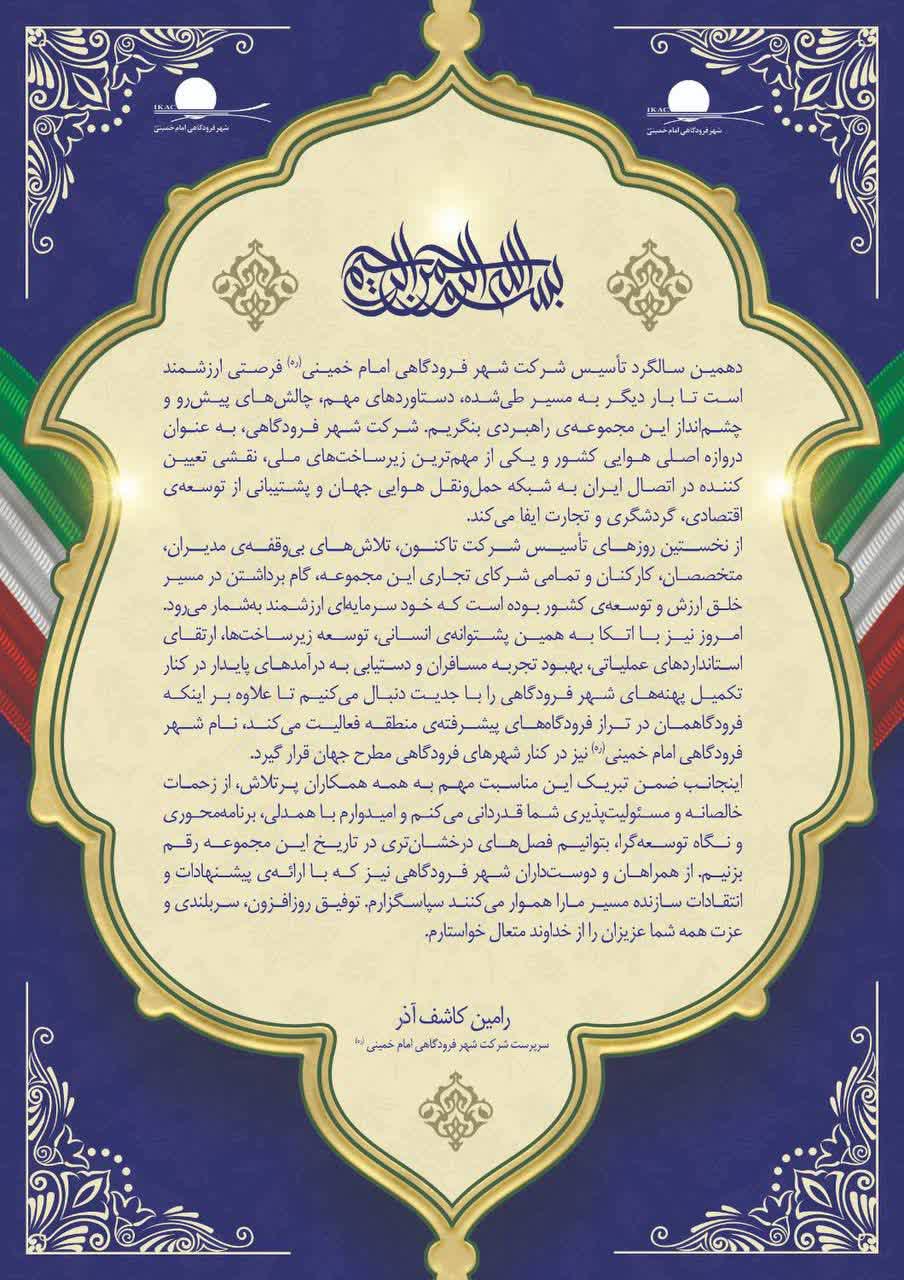 IKAC
شهر فرودگاهی امام خمینی
IKAC
شهر فرودگاهی امام خمینی
بسم الله الرحمن الرحیم
دهمین سالگرد تأسیس شرکت شهر فرودگاهی امام خمینی(ره) فرصتی ارزشمند
است تا بار دیگر به مسیر طی‌شده، دستاوردهای مهم، چالش‌های پیش‌رو و
چشم‌انداز این مجموعه‌ی راهبردی بنگریم. شرکت شهر فرودگاهی، به عنوان
دروازه اصلی هوایی کشور و یکی از مهم‌ترین زیرساخت‌های ملی، نقشی تعیین
کننده در اتصال ایران به شبکه حمل‌ونقل هوایی جهان و پشتیبانی از توسعه‌ی
اقتصادی، گردشگری و تجارت ایفا می‌کند.
از نخستین روزهای تأسیس شرکت تاکنون، تلاش‌های بی‌وقفه‌ی مدیران،
متخصصان، کارکنان و تمامی شرکای تجاری این مجموعه، گام برداشتن در مسیر
خلق ارزش و توسعه‌ی کشور بوده است که خود سرمایه‌ای ارزشمند به‌شمار می‌رود.
امروز نیز با اتکا به همین پشتوانه‌ی انسانی، توسعه زیرساخت‌ها، ارتقای
استانداردهای عملیاتی، بهبود تجربه مسافران و دستیابی به درآمدهای پایدار در کنار
تکمیل پهنه‌های شهر فرودگاهی را با جدیت دنبال می‌کنیم تا علاوه بر اینکه
فرودگاهمان در تراز فرودگاه‌های پیشرفته‌ی منطقه فعالیت می‌کند، نام شهر
فرودگاهی امام خمینی(ره) نیز در کنار شهرهای فرودگاهی مطرح جهان قرار گیرد.
اینجانب ضمن تبریک این مناسبت مهم به همه همکاران پرتلاش، از زحمات
خالصانه و مسئولیت‌پذیری شما قدردانی می‌کنم و امیدوارم با همدلی، برنامه‌محوری
و نگاه توسعه‌گرا، بتوانیم فصل‌های درخشان‌تری در تاریخ این مجموعه رقم
بزنیم. از همراهان و دوست‌داران شهر فرودگاهی نیز که با ارائه‌ی پیشنهادات و
انتقادات سازنده مسیر مارا هموار می‌کنند سپاسگزارم. توفیق روزافزون، سربلندی و
عزت همه شما عزیزان را از خداوند متعال خواستارم.
رامین کاشف آذر
سرپرست شرکت شهر فرودگاهی امام خمینی (ره)